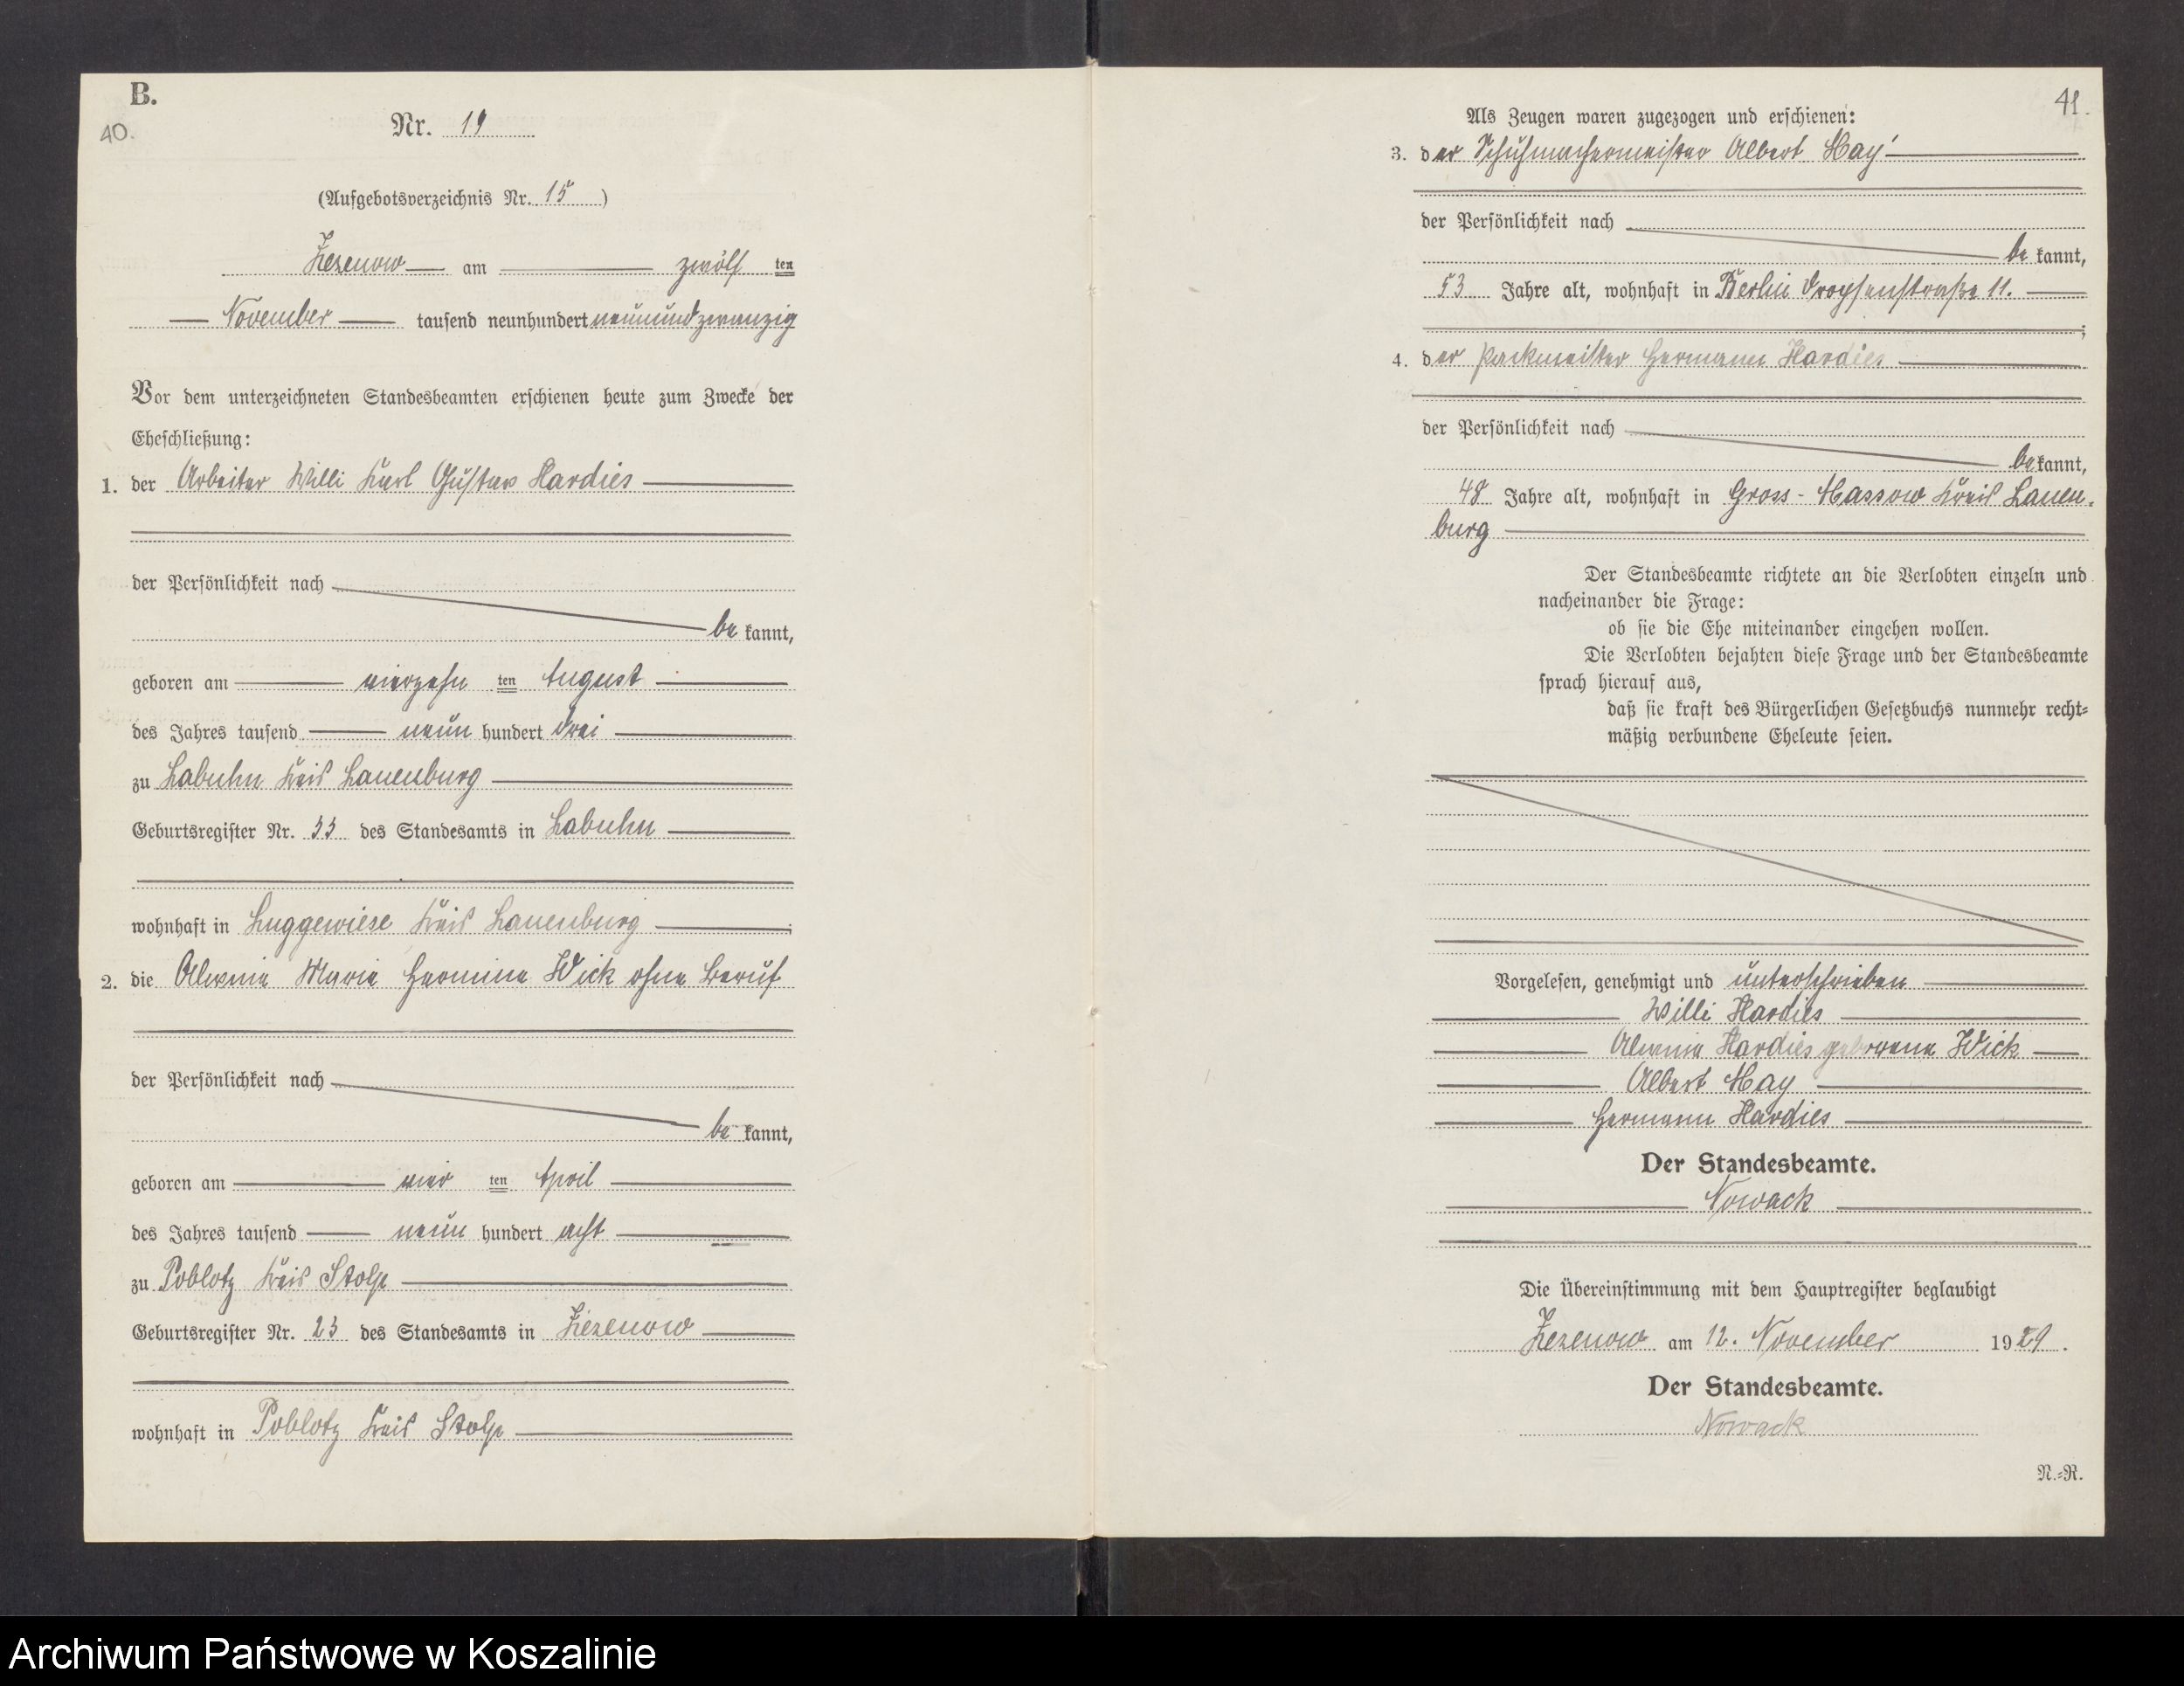 B.
40.
Nr. 19
(Aufgebotsverzeichnis Nr. 15)
Zezenow am zwölf ten
November tausend neunhundert neunundzwanzig
Vor dem unterzeichneten Standesbeamten erschienen heute zum Zwecke der
Eheschließung:
1. der Arbeiter Willi Karl Gustav Hardies
der Persönlichkeit nach
be kannt,
geboren am vierzehn ten August
des Jahres tausend neun hundert drei
zu Labuhn Kreis Lauenburg
Geburtsregister Nr. 33 des Standesamts in Labuhn
wohnhaft in Luggewiese Kreis Lauenburg ;
2. die Alwine Marie Hermine Wick ohne Beruf
der Persönlichkeit nach
be kannt,
geboren am vier ten April
des Jahres tausend neun hundert acht
zu Poblotz Kreis Stolp
Geburtsregister Nr. 23 des Standesamts in Zezenow
wohnhaft in Poblotz Kreis Stolp
41.
Als Zeugen waren zugezogen und erschienen:
3. der Schuhmachermeister Albert Hay
der Persönlichkeit nach
be kannt,
53 Jahre alt, wohnhaft in Berlin Droysenstraße 11.
;
4. der Packmeister Hermann Hardies
der Persönlichkeit nach
be kannt,
48 Jahre alt, wohnhaft in Gross-Massow Kreis Lauen-
burg
Der Standesbeamte richtete an die Verlobten einzeln und
nacheinander die Frage:
ob sie die Ehe miteinander eingehen wollen.
Die Verlobten bejahten diese Frage und der Standesbeamte
sprach hierauf aus,
daß sie kraft des Bürgerlichen Gesetzbuchs nunmehr recht-
mäßig verbundene Eheleute seien.
Vorgelesen, genehmigt und unterschrieben
Willi Hardies
Alwine Hardies geborene Wick
Albert Hay
Hermann Hardies
Der Standesbeamte.
Nowack
Die Übereinstimmung mit dem Hauptregister beglaubigt
Zezenow am 12. November 1929.
Der Standesbeamte.
Nowack
N.-R.
Archiwum Państwowe w Koszalinie